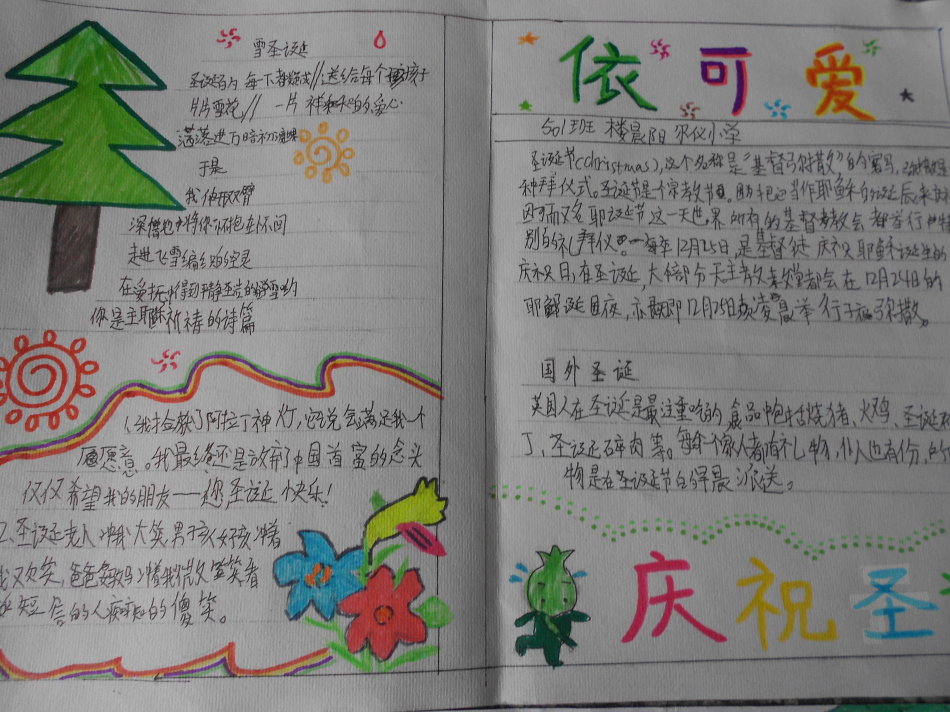 雪圣诞
圣诞的
每一
送给每个
孩子
片雪花//一片祥和的爱心
满落进万暗初
于是
我伸开双臂
深情地将你怀抱在怀间
走进飞雪编织的空灵
在爱抚
得到平静圣洁的
你是主耶稣祈祷的诗篇
1、我捡到了阿拉丁神灯,它说会满足我一个
愿意。我最终还是放弃了中国首富的念头
仅仅希望我的朋友——您圣诞快乐!
2、圣诞老人冲我大笑,男孩女孩冲着
我欢笑,爸爸妈妈冲着我微笑笑着
短信的人痴痴的傻笑。
依可爱
501班 楼晨阳
小学
圣诞节(christmas),这个名称是“基督弥撒”的缩写。弥撒是
种拜仪式。圣诞节是个宗教节日。
把它当作耶稣的诞辰来
因而又名耶诞节这一天世界所有的基督教会都举行
别的礼拜仪
每年12月25日,是基督徒庆祝耶稣诞生的
庆祝日,在圣诞,大部分天主教教堂都会在12月24日的
耶诞
夜,亦即12月25日凌晨举行子夜弥撒。
国外圣诞
英国人在圣诞是最注重吃的,食品中包括烧猪、火鸡、圣诞布
丁、圣诞碎肉等。每个家人都有礼物,仆人也有份,
物是在圣诞节的早晨派送。
庆祝圣